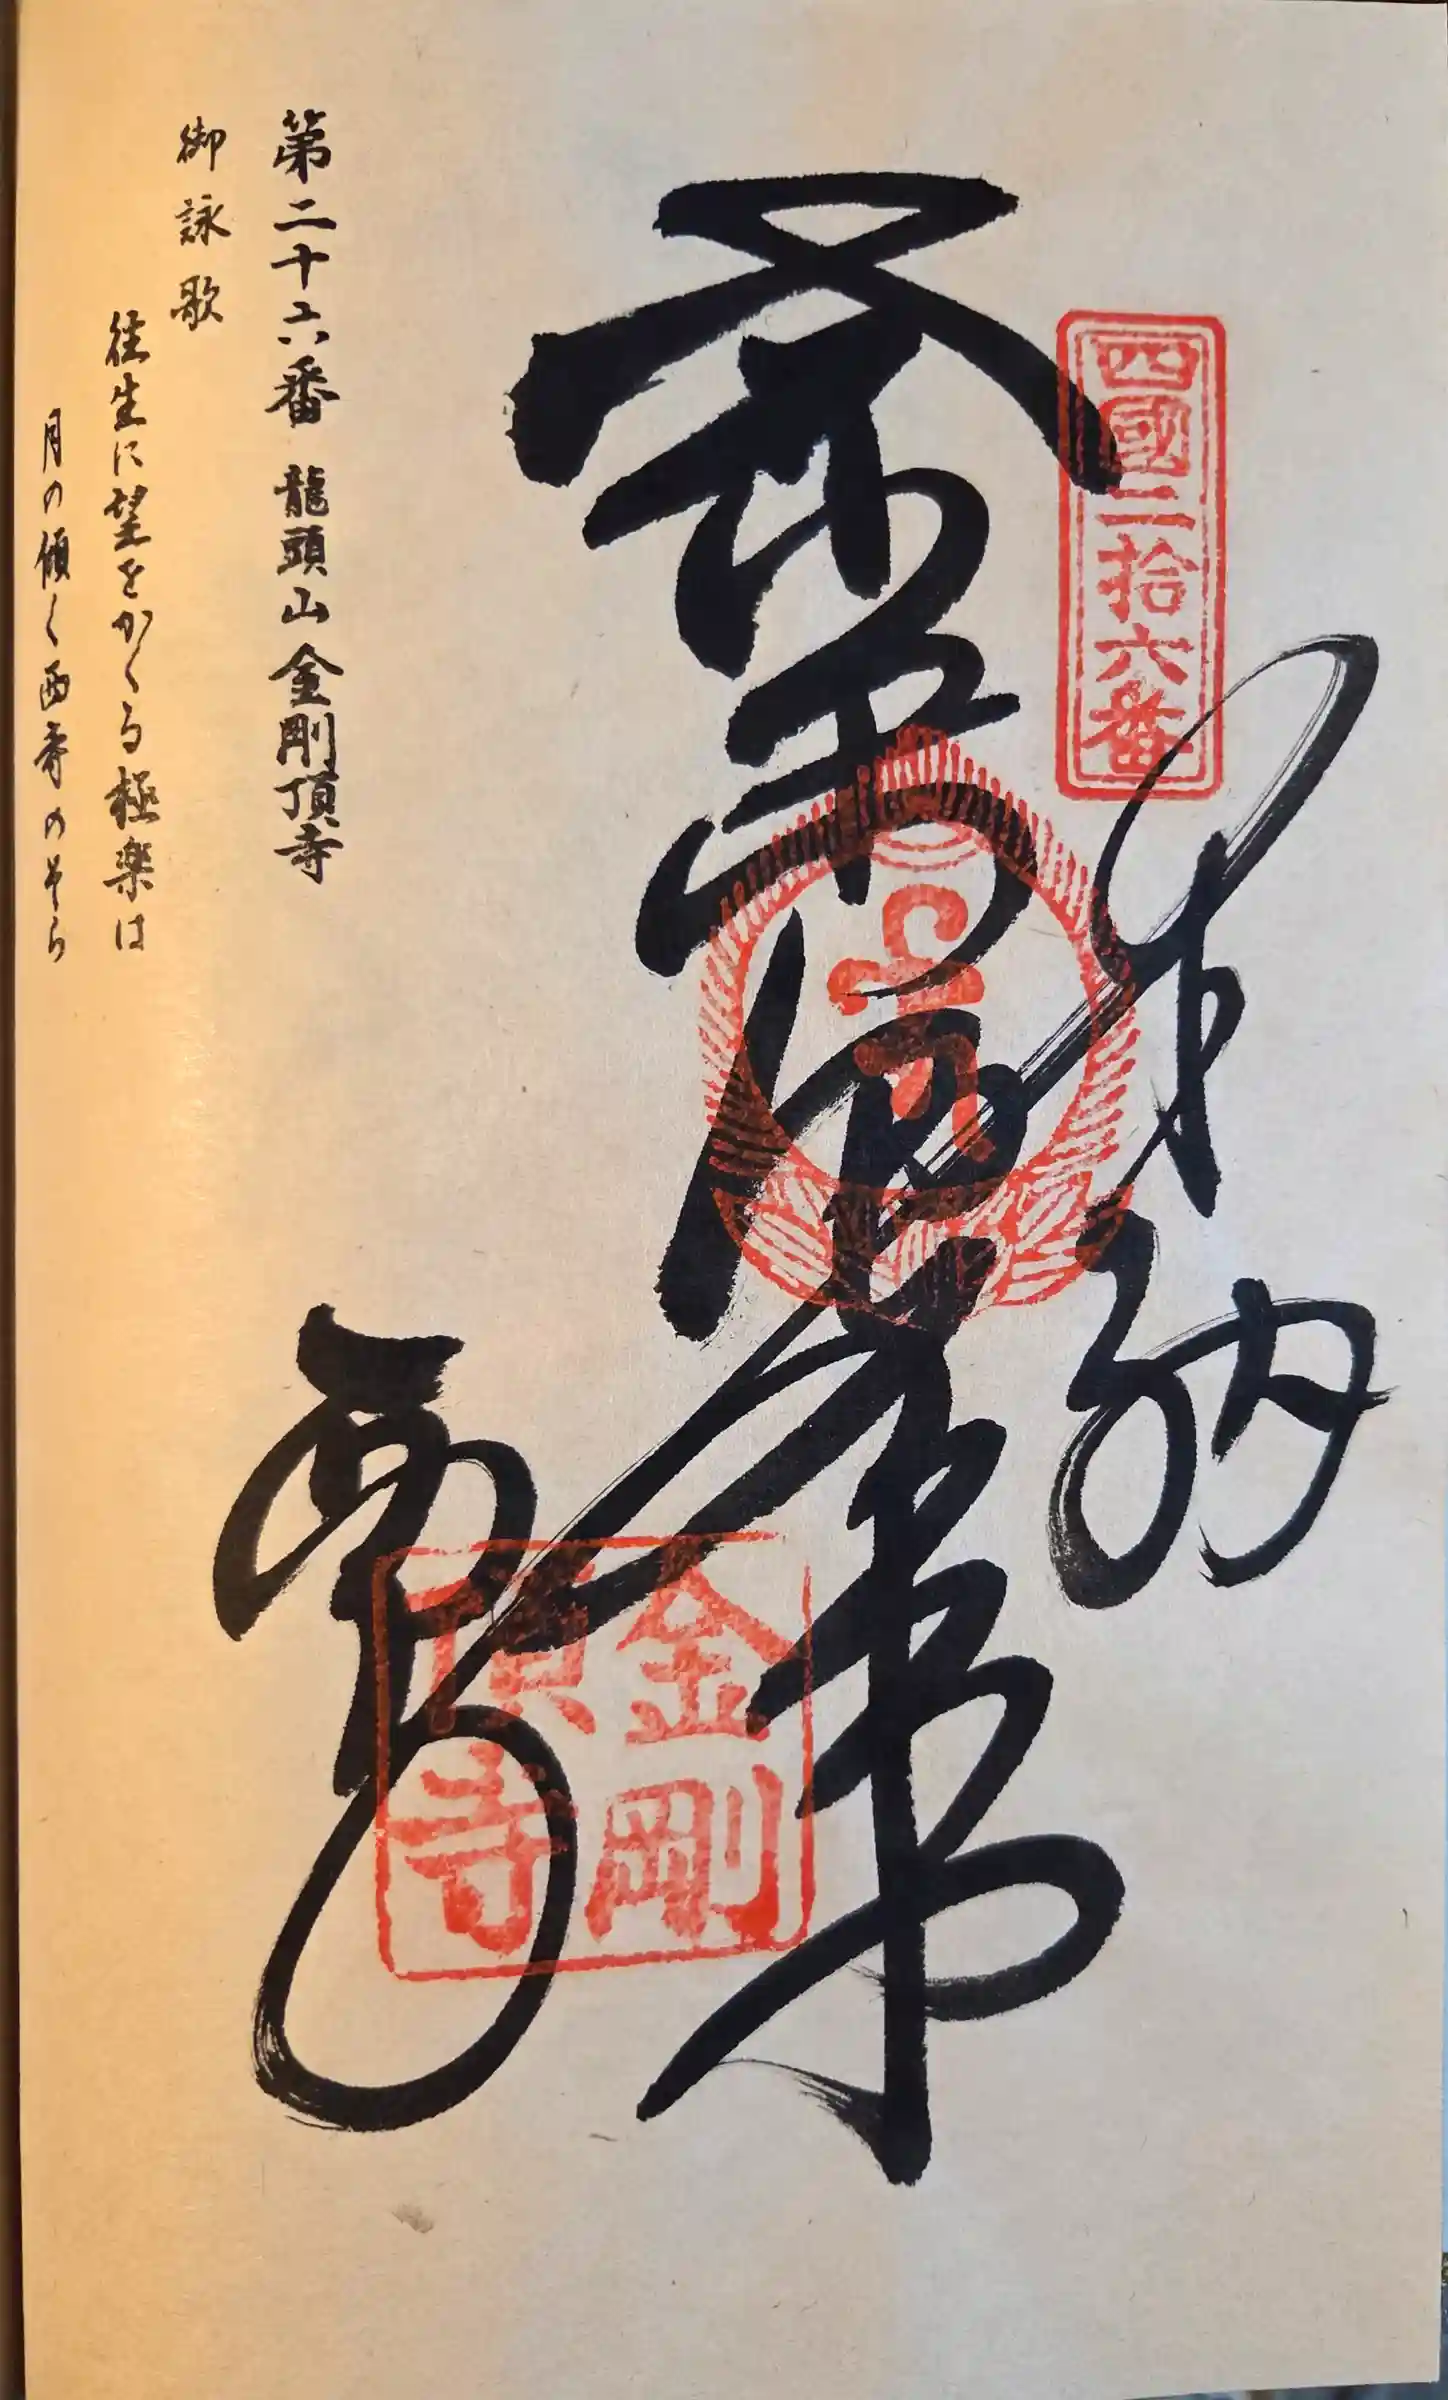 四國二拾六番
奉納
薬師如来
西寺
金剛
頂寺
第二十六番 龍頭山 金剛頂寺
御詠歌
往生に望をかくる極楽は
月の傾く西寺のそら